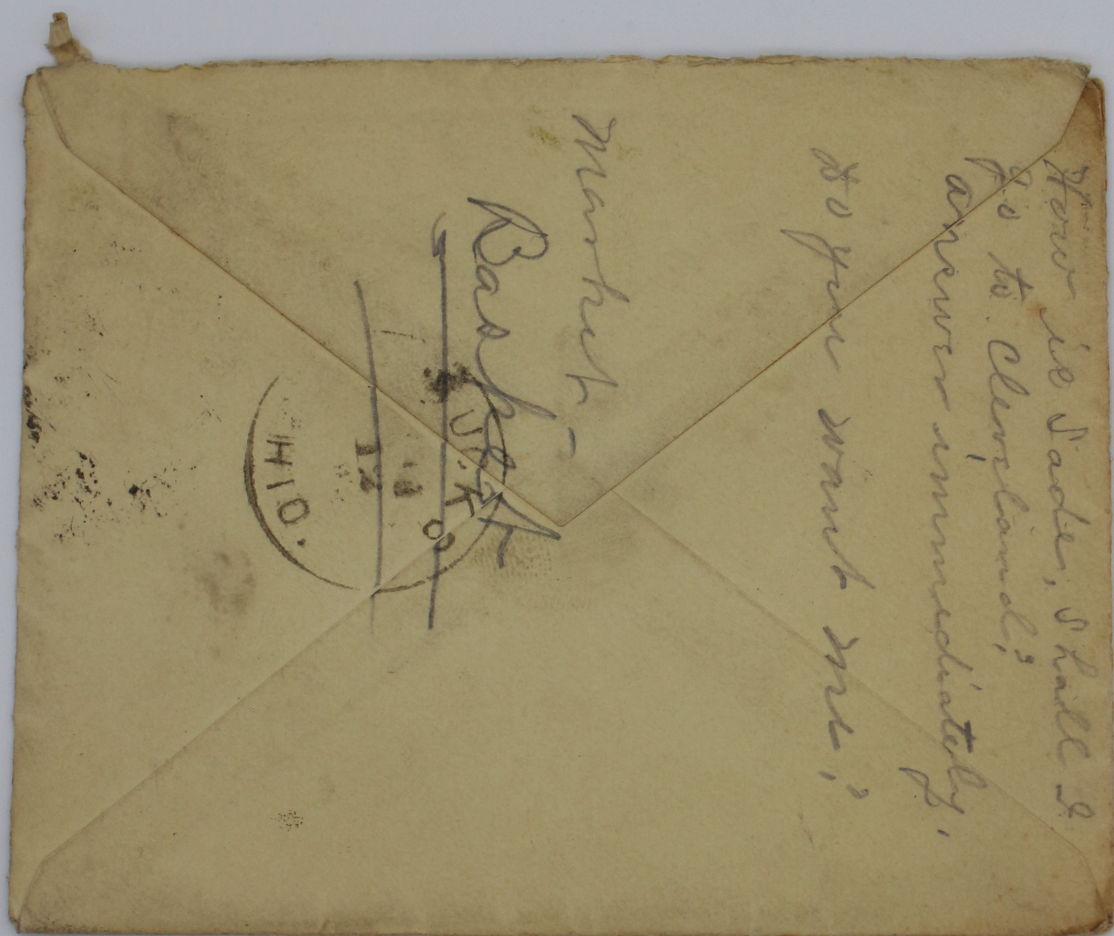 How is Sade, Shall I
go to Cleveland?
answer immediately.
Do you want me?
Market -
Basket
OHIO.